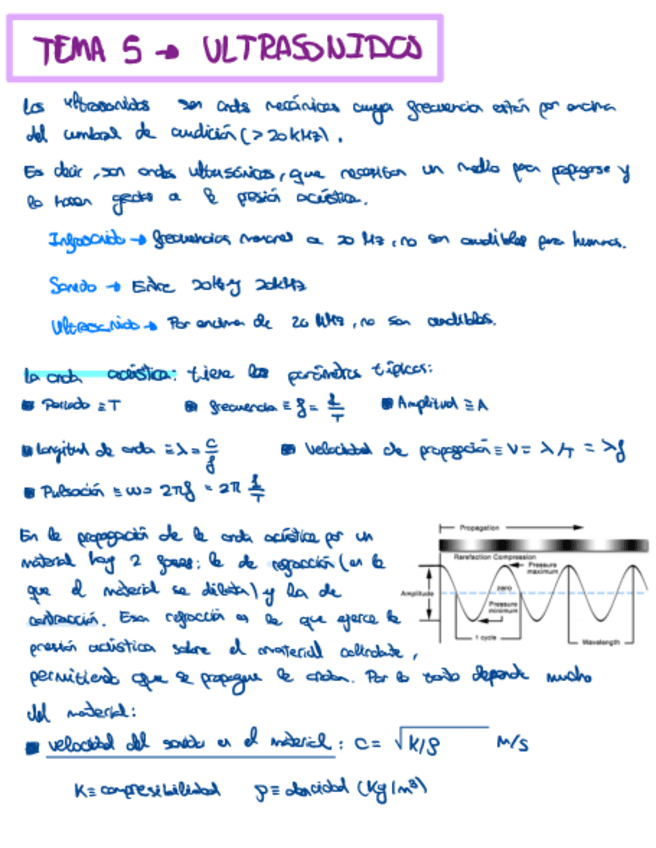 TEMA 5 → ULTRASONIDOS
Los ultrasonidos son ondas mecánicas cuya frecuencia están por encima
del umbral de audición (> 20 kHz).
Es decir, son ondas ultrasónicas, que necesitan un medio para propagarse y
lo hacen gracias a la presión acústica.
Infrasonido → frecuencias menores a 20 Hz, no son audibles para humanos.
Sonido → Entre 20Hz y 20kHz
Ultrasonido → Por encima de 20 kHz, no son audibles.
La onda acústica: tiene los parámetros típicos:
Periodo ≡ T
frecuencia ≡ f = 1/T
Amplitud ≡ A
Longitud de onda ≡ λ = c/f
Velocidad de propagación ≡ v = λ/T = λf
Pulsación ≡ ω = 2πf = 2π 1/T
En la propagación de la onda acústica por un
material hay 2 fases: la de (en la
que el material se dilata) y la de
contracción. Esa es la que ejerce la
presión acústica sobre el material colindante,
permitiendo que se propague la onda. Por lo tanto depende mucho
del material:
Propagation
Rarefaction Compression
Pressure maximum
Amplitude
zero
Pressure minimum
1 cycle
Wavelength
velocidad del sonido en el material: c = √K/ρ M/S
K ≡ compresibilidad ρ ≡ densidad (Kg/m³)